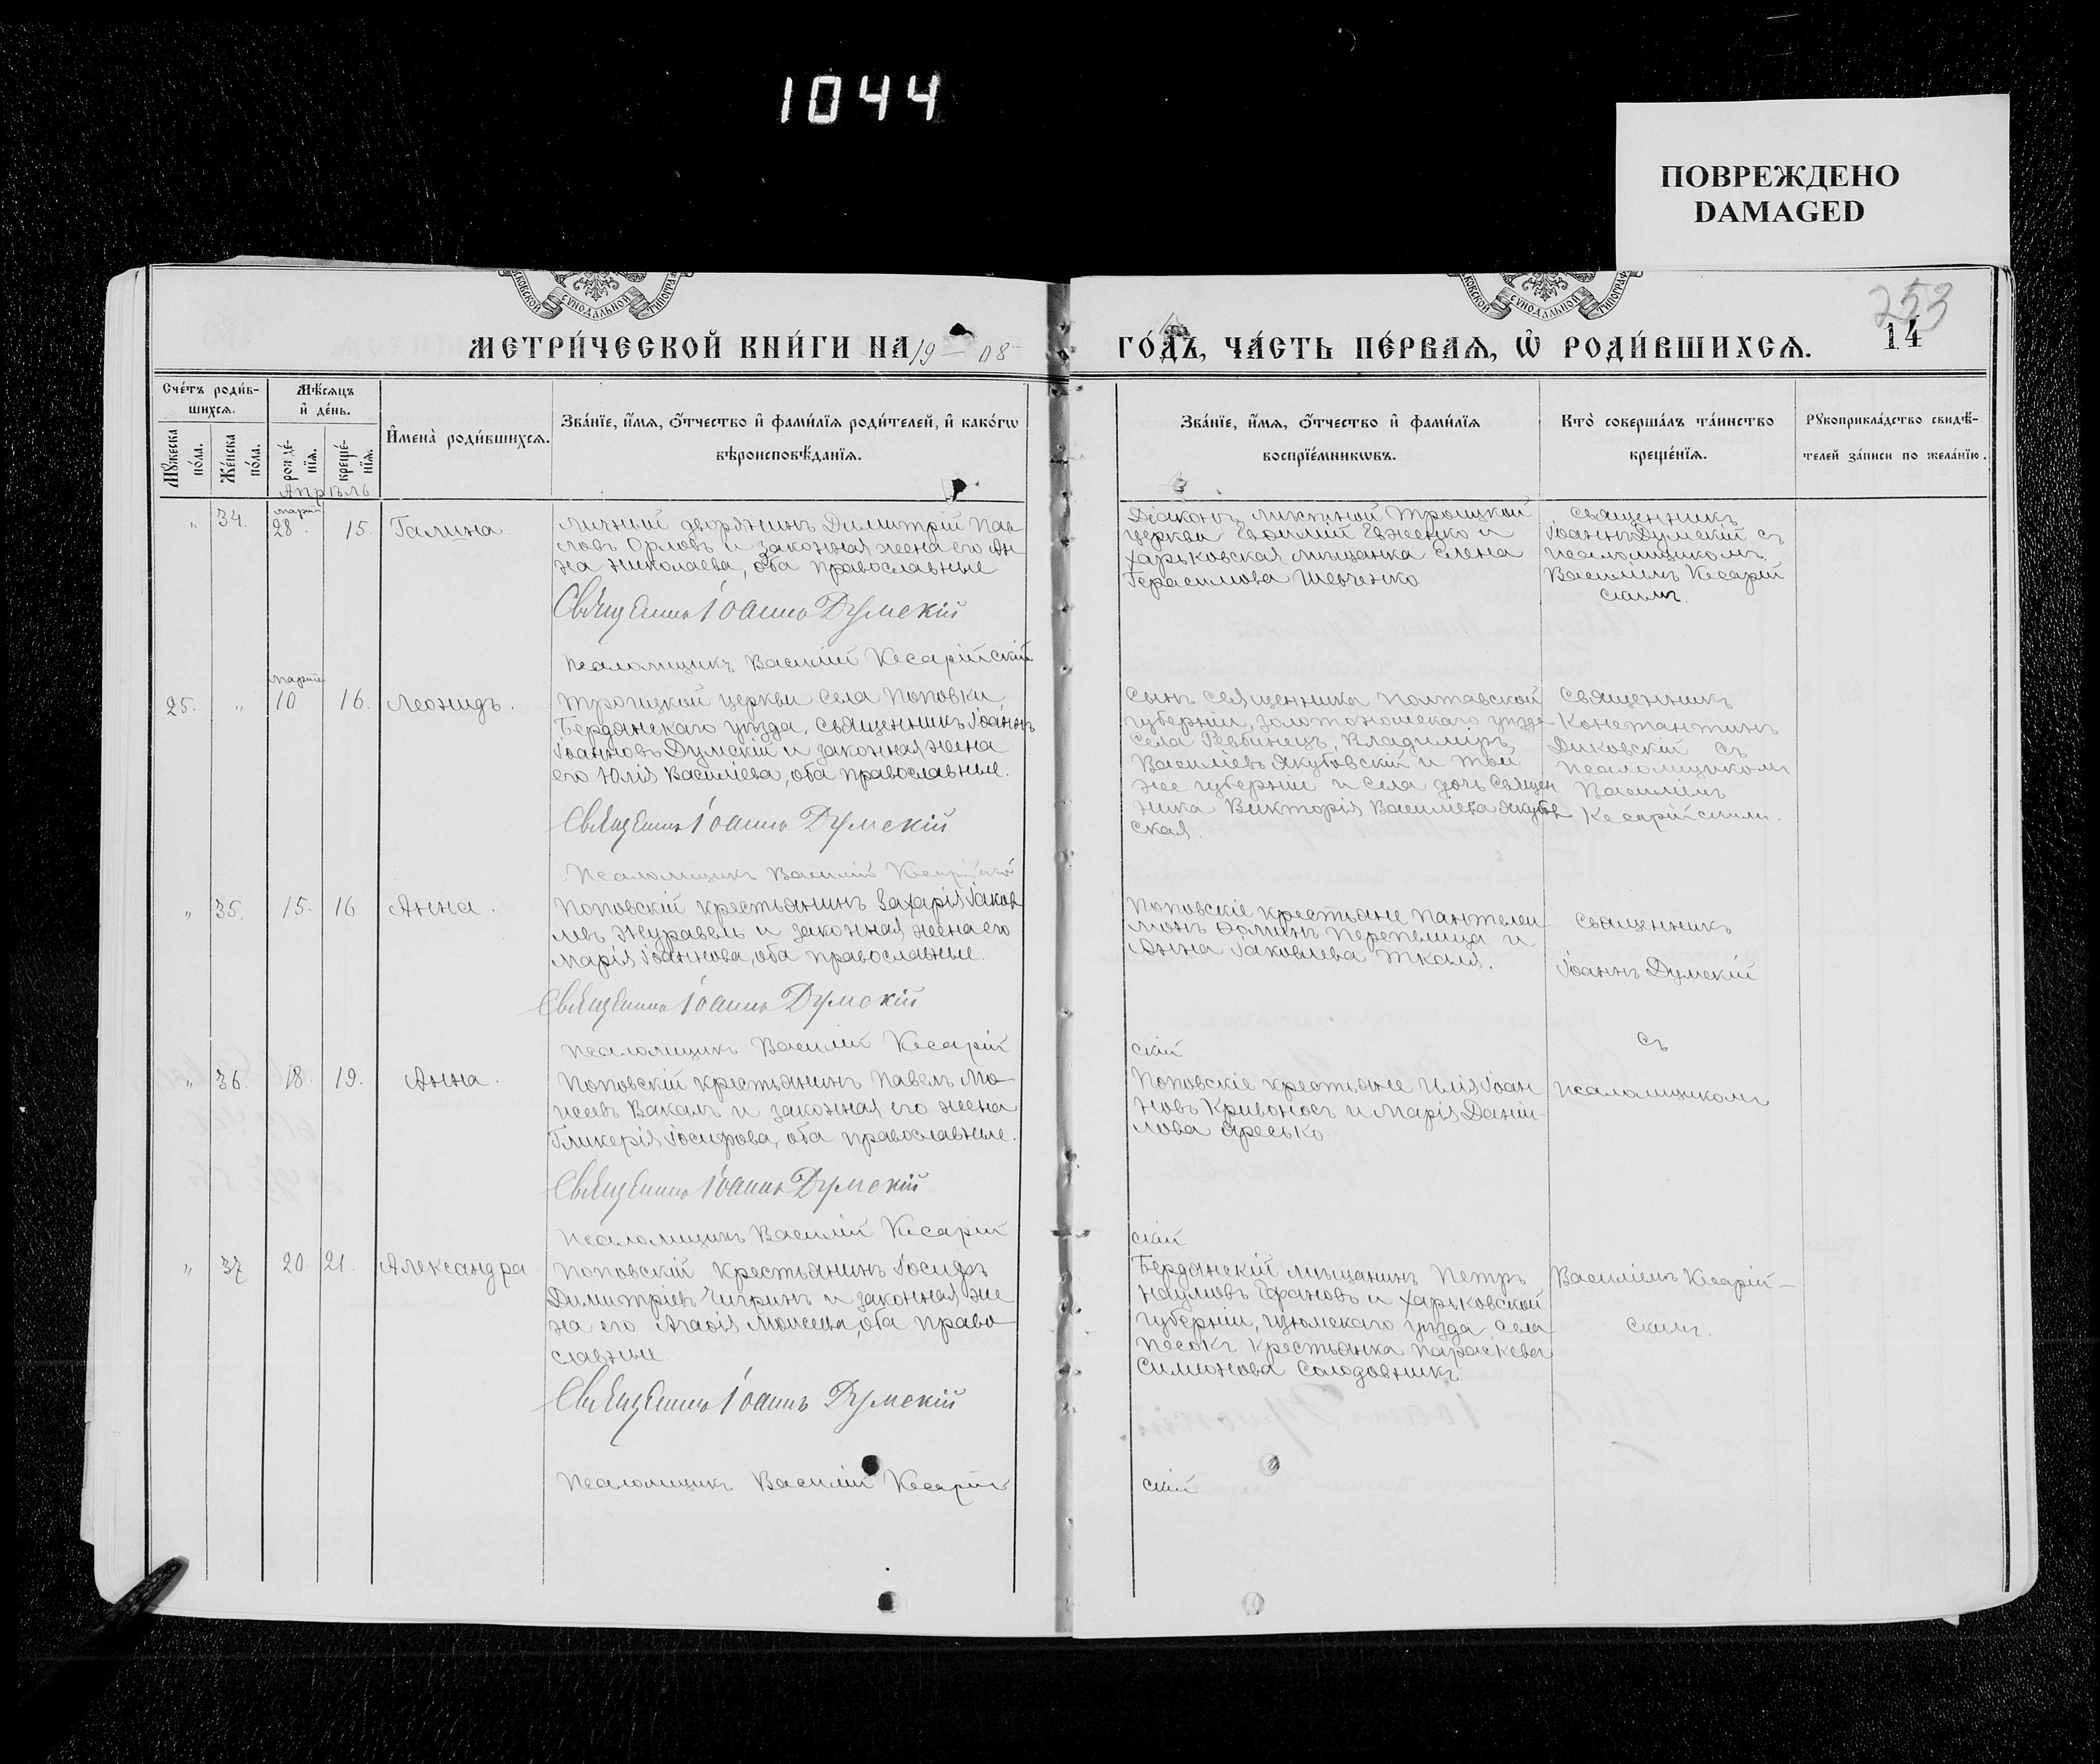 1044
ПОВРЕЖДЕНО
DAMAGED
253
14
МЕТРИ́ЧЕСКОЙ КНИ́ГИ НА 1908
ГО́ДЪ, ЧА́СТЬ ПЕ́РВАѦ, Ѡ҆ РОДИ́ВШИХСѦ.
Сче́тъ роди́в-
шихсѧ.
Мѣ́сѧцъ
и҆ де́нь.
Мꙋ́жеска
по́ла.
Же́нска
по́ла.
рожде́-
нїѧ.
креще́-
нїѧ.
И҆мена̀ роди́вшихсѧ.
Зва́нїе, и҆́мѧ, ѻ҆́тчество и҆ фами́лїѧ роди́телей, и҆ како́гѡ
вѣроисповѣ́данїѧ.
Зва́нїе, и҆́мѧ, ѻ҆́тчество и҆ фами́лїѧ
воспрїе́мникѡвъ.
Кто̀ соверша́лъ та́инство
креще́нїѧ.
Рꙋкоприкла́дство свидѣ́-
телей за́писи по жела́нїю.
Апрѣль
" 34. Марта 28. 15. Галина
Личный дворянинъ Димитрій Пав
ловъ Орловъ и законная жена его Ан
на Николаева, оба православные
Священникъ Іоаннъ Думскій
Псаломщикъ Василій Кесарійскій
Діаконъ Троицкой
церкви и
Харьковская мѣщанка Елена
Герасимова Шевченко
Священникъ
Іоаннъ Думскій съ
псаломщикомъ
Василіемъ Кесарій
скимъ.
25. " Марта 10 16. Леонидъ.
Троицкой церкви села Поповки,
Бердянскаго уѣзда, Священникъ Іоаннъ
Іоанновъ Думскій и законная жена
его Юлія Василіева, оба православные.
Священникъ Іоаннъ Думскій
Псаломщикъ Василій Кесарійскій
Сынъ священника Полтавской
губерніи, Золотоношскаго уѣзда
села Владиміръ
Василіевъ Якубовскій и той
же губерніи и села дочь Священ
ника Викторія Василіева Якубов
ская.
Священникъ
Константинъ
Диковскій съ
псаломщикомъ
Василіемъ
Кесарійскимъ.
" 35. 15. 16 Анна.
Поповскій крестьянинъ Захарія Іаков
левъ Журавель и законная жена его
Марія Іоаннова, оба православные.
Священникъ Іоаннъ Думскій
Псаломщикъ Василій Кесарій
Поповскіе крестьяне Пантелеи
монъ Ѳоминъ Перепелица и
Анна Іаковлева Ткаля.
скій
Священникъ
Іоаннъ Думскій
съ
" 36. 18. 19. Анна.
Поповскій крестьянинъ Павелъ Мо
исеевъ Вакалъ и законная его жена
Гликерія Іосифова, оба православные.
Священникъ Іоаннъ Думскій
Псаломщикъ Василій Кесарій
Поповскіе крестьяне Илія Іоан
новъ Кривоносъ и Марія Даніи-
лова Яресько
скій
псаломщикомъ
" 37 20. 21. Александра
Поповскій крестьянинъ Іосифъ
Димитріевъ Чигринъ и законная же
на его Агаѳія Моисеева, оба право-
славные
Священникъ Іоаннъ Думскій
Псаломщикъ Василій Кесарій
Бердянскій мѣщанинъ Петръ
Наумовъ Ефановъ и Харьковской
губерніи, Изюмскаго уѣзда села
Песокъ крестьянка Параскева
Симеонова Солодовникъ
скій
Василіемъ Кесарій-
скимъ.